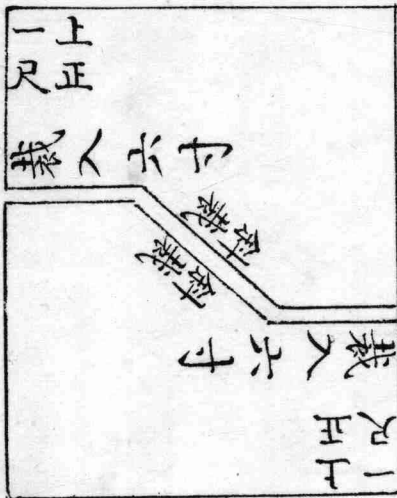 上正
一尺
裁入六寸
斜裁
斜裁
裁入六寸
上正
一尺